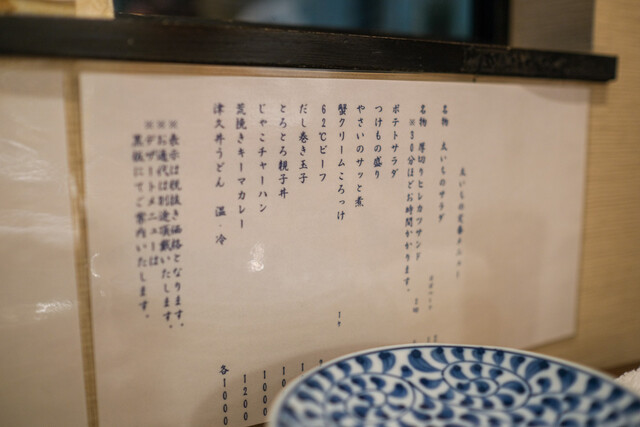 ゑいちの定番メニュー
名物 ゑいちのサラダ
名物 厚切りヒレカツサンド
※30分ほどお時間かかります。
ポテトサラダ
つけもの盛り
やさいのサッと煮
蟹クリームころっけ
62℃ビーフ
だし巻き玉子
とろとろ親子丼
じゃこチャーハン 1000
荒挽きキーマカレー 1200
津久井うどん 温・冷 各1000
※表示は税抜き価格となります。
※お通代は別途頂戴いたします。
※デザートメニューは
黒板にてご案内いたします。